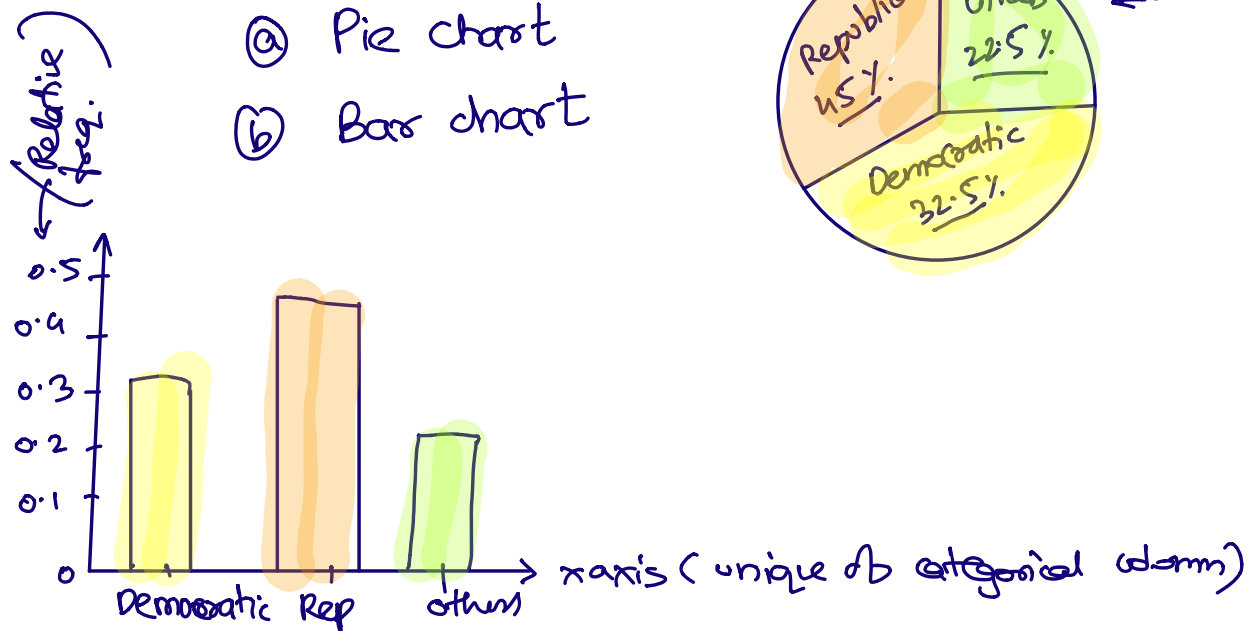 (Relative
freq.)
ⓐ Pie chart
ⓑ Bar chart
Republic
45%.
22.5%
Democratic
32.5%
0.5
0.4
0.3
0.2
0.1
0
Democratic Rep others
xaxis (unique of categorical column)